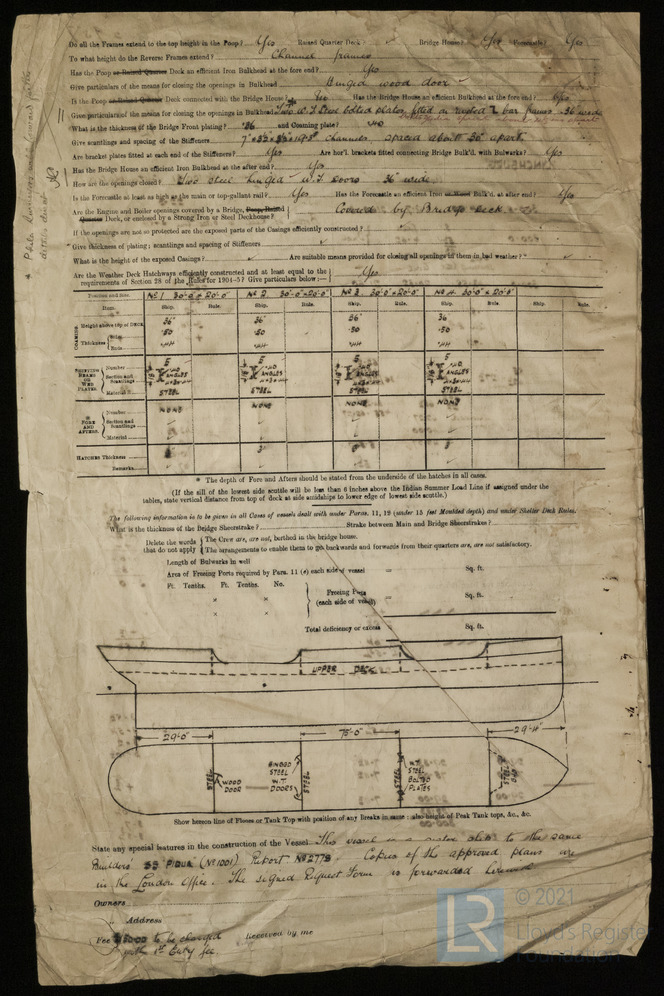 Do all the Frames extend to the top height in the Poop? Yes Raised Quarter Deck? Bridge House? Yes Forecastle? Yes
To what height do the Reverse Frames extend? Channel frames
Has the Poop or Raised Quarter Deck an efficient Iron Bulkhead at the fore end? Yes
Give particulars of the means for closing the openings in Bulkhead Hinged wood door
Is the Poop or Raised Quarter Deck connected with the Bridge House? Has the Bridge House an efficient Bulkhead at the fore end? Yes
Give particulars of the means for closing the openings in Bulkhead Two W.T. Steel bolted plates fitted 36" wide
What is the thickness of the Bridge Front plating? .36 and Coaming plate? .40
Give scantlings and spacing of the Stiffeners channels spaced about 30" apart
Are bracket plates fitted at each end of the Stiffeners? Yes Are hor'l. brackets fitted connecting Bridge Bulk'd. with Bulwarks? Yes
Has the Bridge House an efficient Iron Bulkhead at the after end? Yes
How are the openings closed? Two steel hinged W.T. Doors 36" wide
Is the Forecastle at least as high as the main or top-gallant rail? Yes Has the Forecastle an efficient Iron or Wood Bulk'd. at after end? Yes
Are the Engine and Boiler openings covered by a Bridge, Poop, Raised Covered by Bridge Deck
Quarter Deck, or enclosed by a Strong Iron or Steel Deckhouse?
If the openings are not so protected are the exposed parts of the Casings efficiently constructed?
Give thickness of plating; scantlings and spacing of Stiffeners
What is the height of the exposed Casings? Are suitable means provided for closing all openings in them in bad weather?
Are the Weather Deck Hatchways efficiently constructed and at least equal to the Yes
requirements of Section 28 of the Rules for 1904-5? Give particulars below:—
Position and Size. No 1 30'-0" x 20'-0" No 2 30'-0" x 20'-0" No 3 30'-0" x 20'-0" No 4 30'-0" x 20'-0"
Item. Ship. Rule. Ship. Rule. Ship. Rule. Ship. Rule. Ship. Rule.
COAMING Height above top of DECK 36" 36" 36" 36"
Thickness Sides .50 .50 .50 .50
Ends .44 .44 .44 .44
SHIFTING BEAMS OR WEB PLATES Number 5 5 5 5
Section and Scantlings ANGLES ANGLES ANGLES ANGLES
Material STEEL STEEL STEEL STEEL
* FORE AND AFTERS. Number NONE NONE NONE NONE
Section and Scantlings
Material
HATCHES Thickness 3" 3" 3"
Remarks.
* The depth of Fore and Afters should be stated from the underside of the hatches in all cases.
(If the sill of the lowest side scuttle will be less than 6 inches above the Indian Summer Load Line if assigned under the
tables, state vertical distance from top of deck at side amidships to lower edge of lowest side scuttle.)
The following information is to be given in all Cases of vessels dealt with under Paras. 11, 12 (under 15 feet Moulded depth) and under Shelter Deck Rules.
What is the thickness of the Bridge Sheerstrake? Strake between Main and Bridge Sheerstrakes?
Delete the words The Crew are, are not, berthed in the bridge house.
that do not apply The arrangements to enable them to get backwards and forwards from their quarters are, are not satisfactory.
Length of Bulwarks in well
Area of Freeing Ports required by Para. 11 (e) each side of vessel = Sq. ft.
Ft. Tenths. Ft. Tenths. No.
× Freeing Ports = Sq. ft.
× (each side of vessel)
Total deficiency or excess Sq. ft.
UPPER DECK
29'-0" 75'-0" 29'-10"
STEEL WOOD DOOR HINGED STEEL W.T. DOORS STEEL STEEL W.T. STEEL BOLTED PLATES STEEL
Show hereon line of Floors or Tank Top with position of any Breaks in same: also height of Peak Tank tops, &c., &c.
State any special features in the construction of the Vessel. This vessel is a sister ship to the same
Builders' SS PIQUA (No 1001) Report No 2773. Copies of the approved plans are
in the London Office. The signed Request Form is forwarded herewith
Owners
" Address
Fee to be charged Received by me
with 1st Entry fee
© 2021
LR Lloyd's Register
Foundation